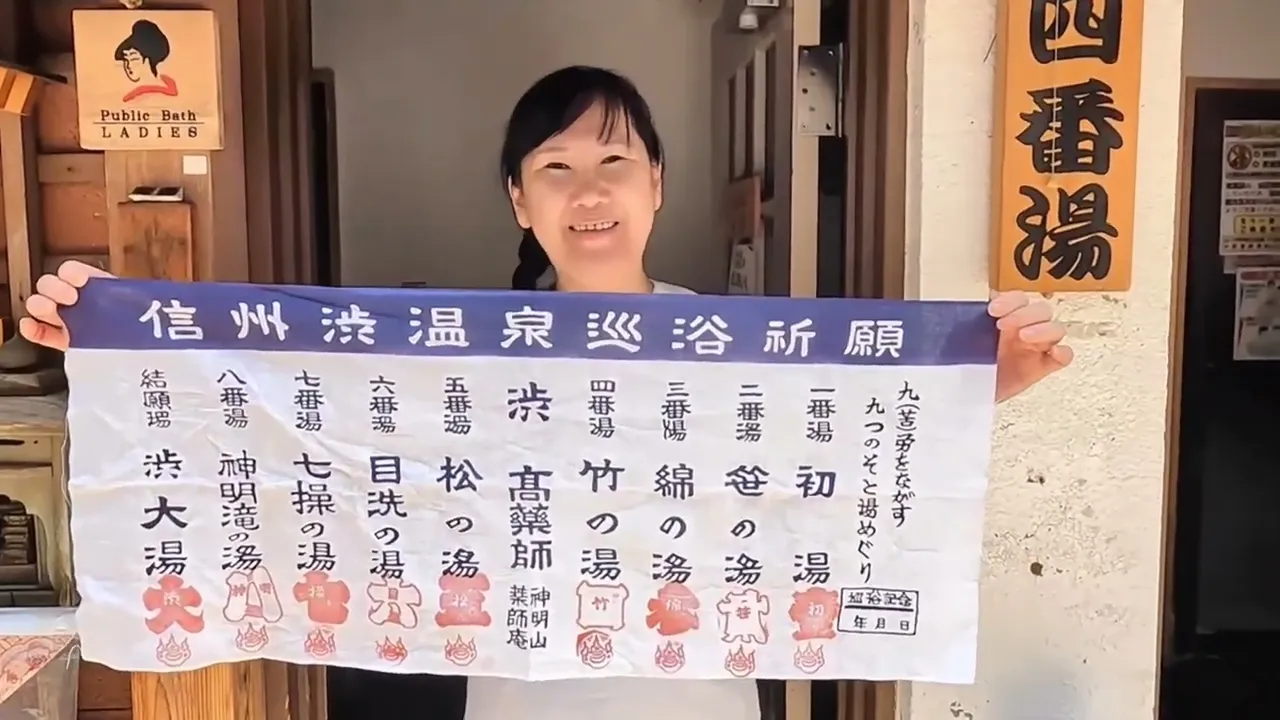 Public Bath
LADIES
四番湯
信州渋温泉巡浴祈願
九(苦)労をながす
九つのそと湯めぐり
巡浴記念
年月日
一番湯 初湯
二番湯 笹の湯
三番陽 綿の湯
四番湯 竹の湯
渋 高藥師
神明山
薬師庵
五番湯 松の湯
六番湯 目洗の湯
七番湯 七操の湯
八番湯 神明滝の湯
結願場 渋大湯
初
笹
綿
竹
松
目
操
神
渋